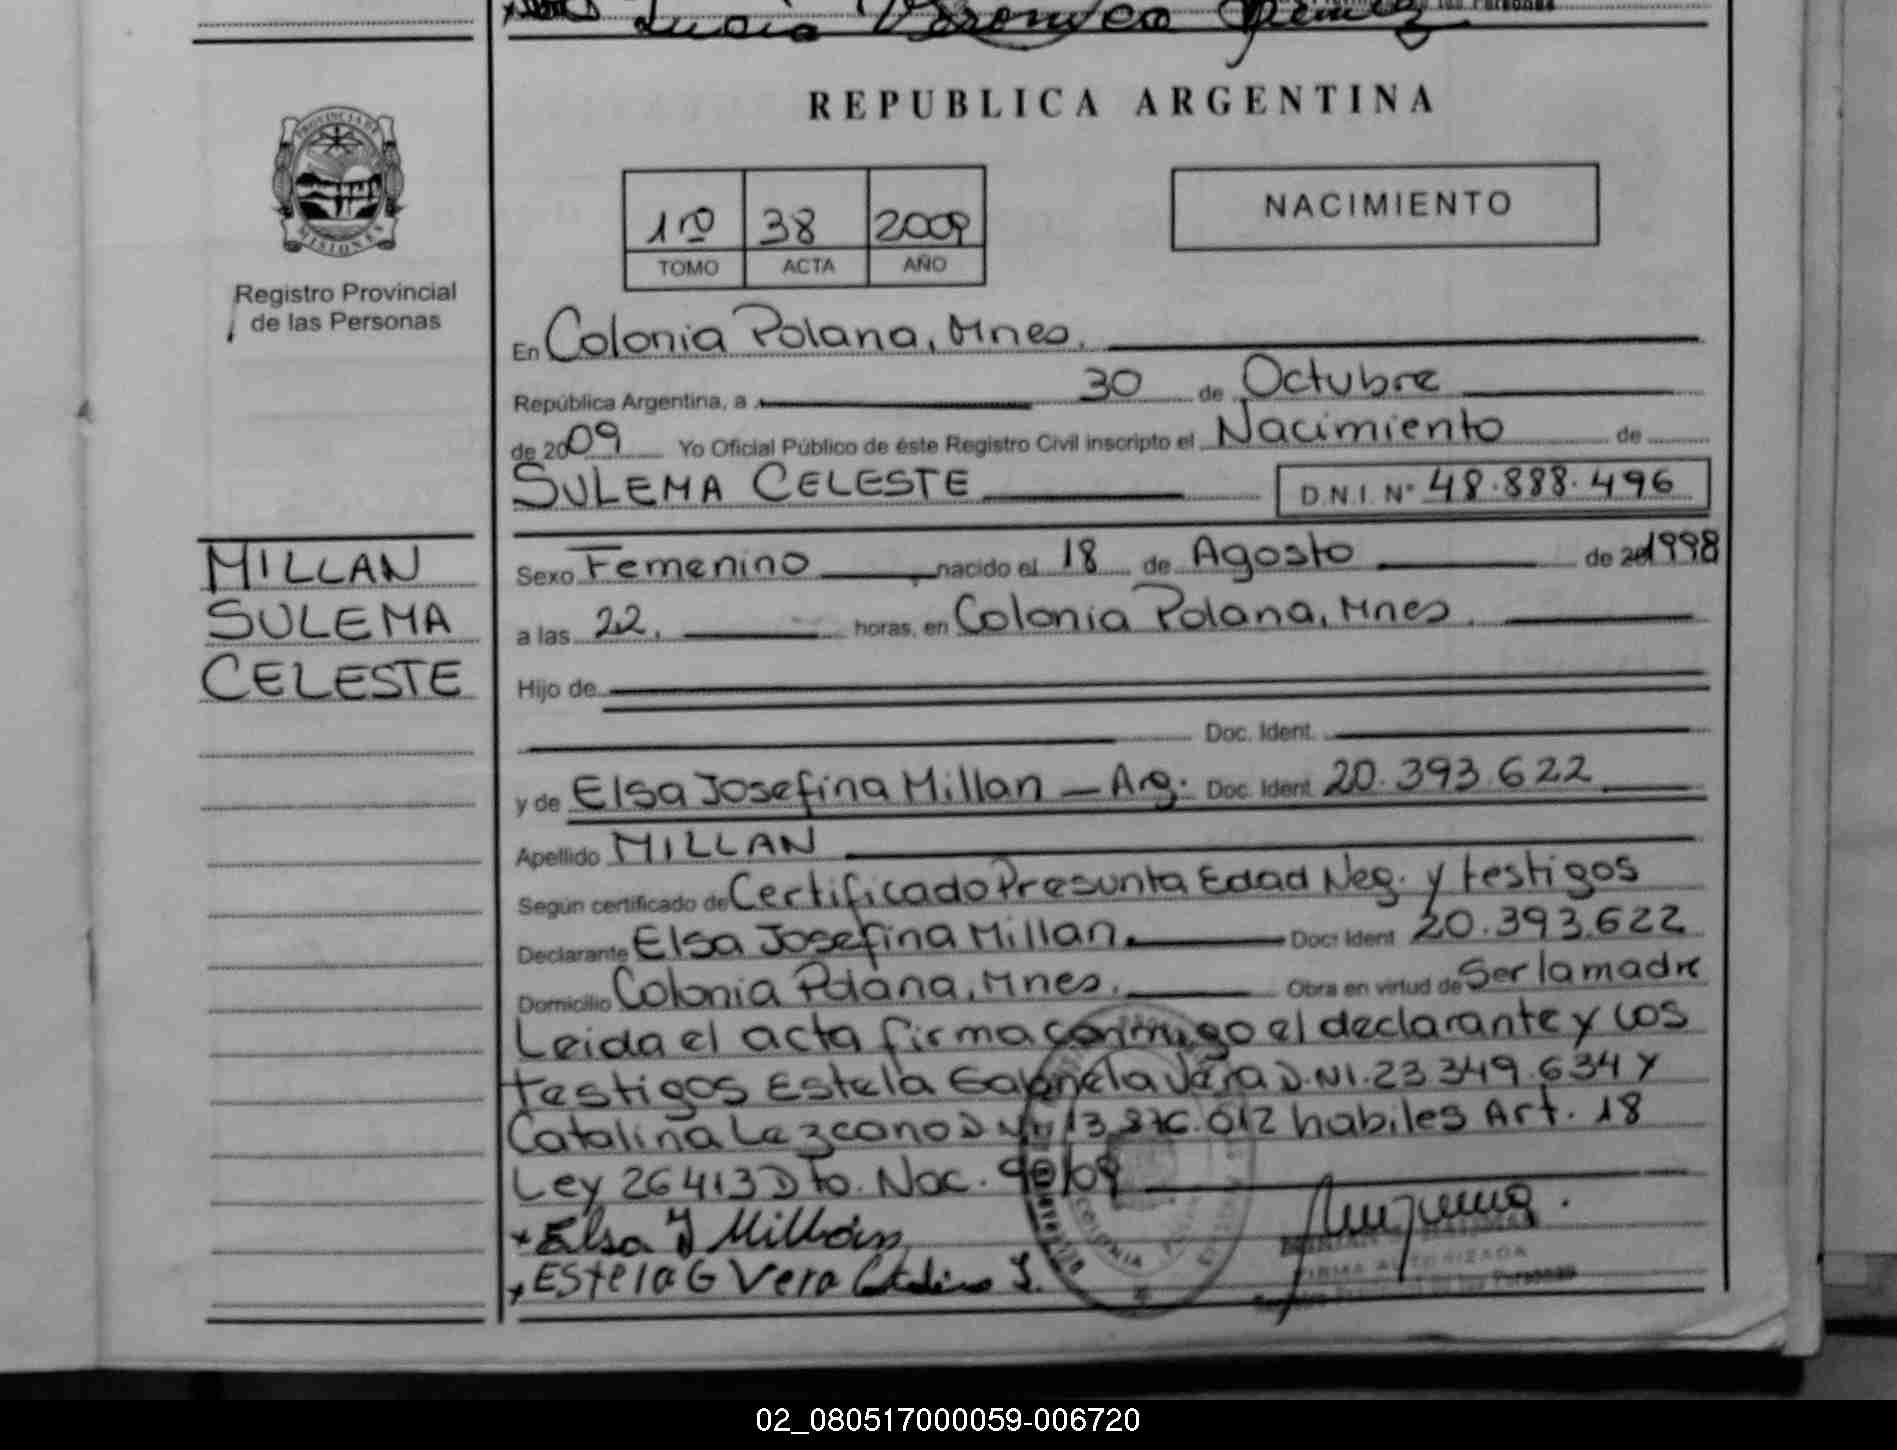 Lucia Veronica
REPUBLICA ARGENTINA
PROVINCIA DE
MISIONES
Registro Provincial
de las Personas
1rº 38 2009
TOMO ACTA AÑO
NACIMIENTO
En Colonia Polana, Mnes.
República Argentina, a 30 de Octubre
de 2009 Yo Oficial Público de éste Registro Civil inscripto el Nacimiento de
SULEMA CELESTE D.N.I. Nº 48.888.496
MILLAN
SULEMA
CELESTE
Sexo Femenino nacido el 18 de Agosto de 1998
a las 22. horas, en Colonia Polana, Mnes.
Hijo de
Doc. Ident.
y de Elsa Josefina Millan - Arg. Doc. Ident 20.393.622
Apellido MILLAN
Según certificado de Certificado Presunta Edad Neg. y testigos
Declarante Elsa Josefina Millan. Doc. Ident 20.393.622
Domicilio Colonia Polana, Mnes. Obra en virtud de Ser la madre
Leida el acta firma conmigo el declarante y los
testigos Estela Gabriela Vera D.NI. 23.349.634 y
Catalina Lezcano D habiles Art. 18
Ley 26413 Dto. Nac. 90/09
Elsa J Millán
Estela G Vera
FIRMA AUTORIZADA
02_080517000059-006720